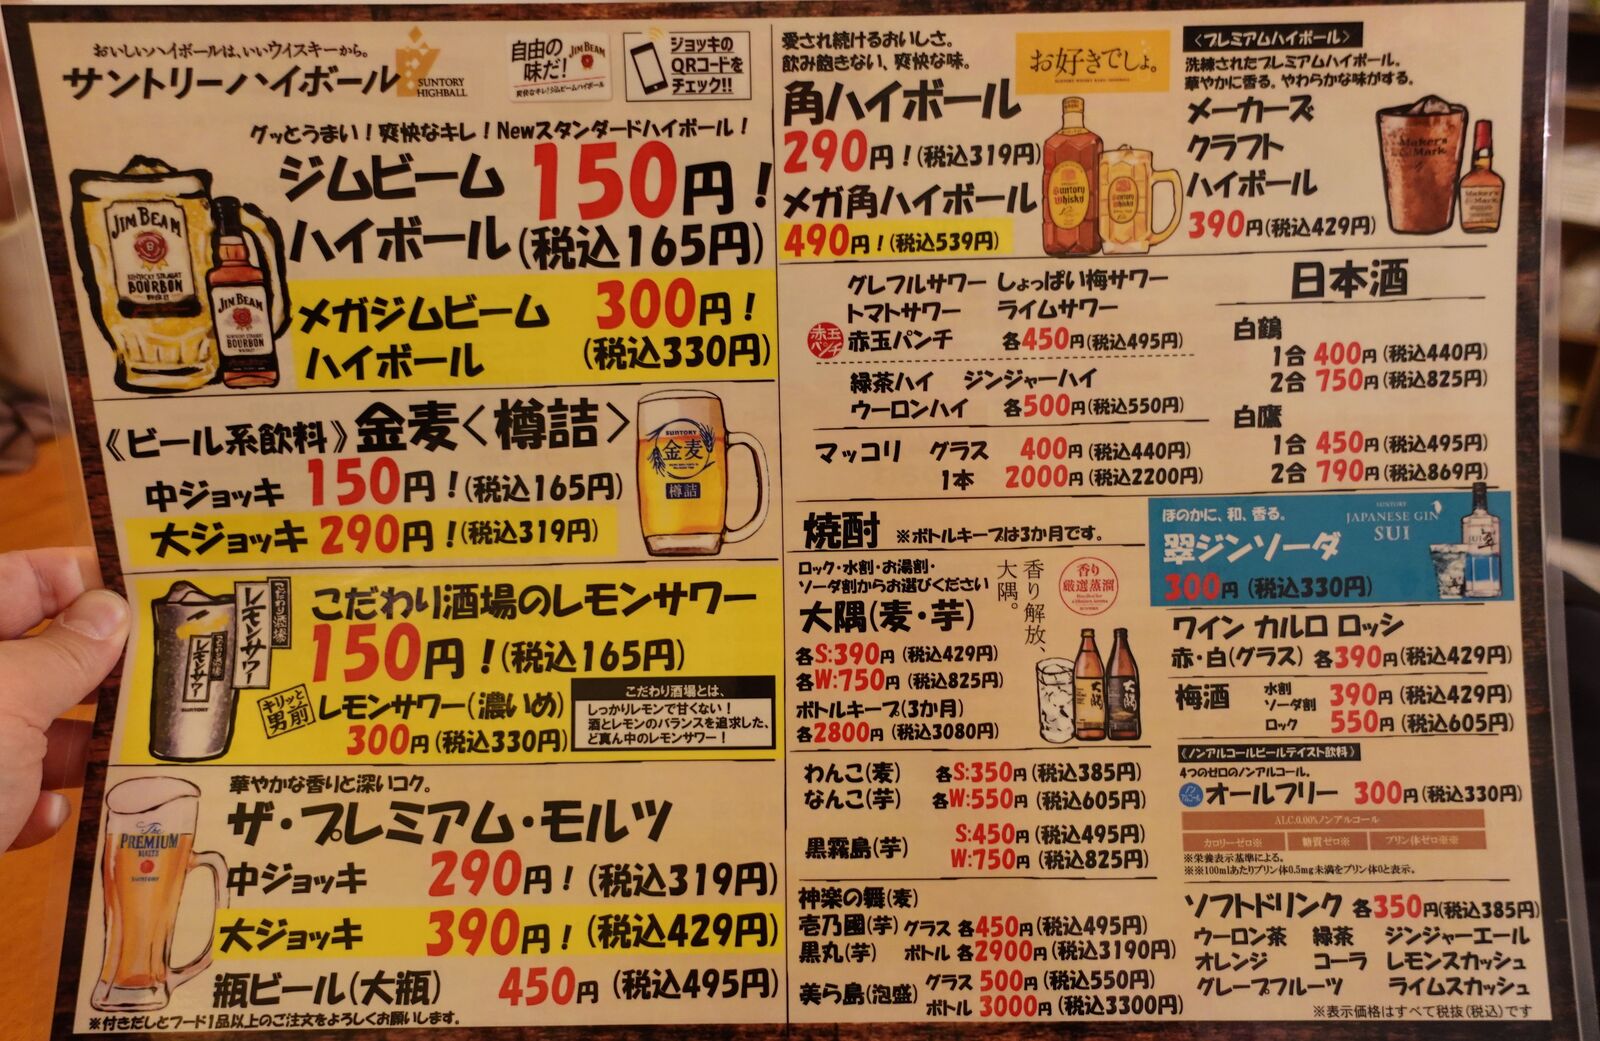 おいしいハイボールは、いいウイスキーから。
サントリーハイボール
SUNTORY
HIGHBALL
自由の
味だ!
JIM BEAM
爽快なキレ!ジムビームハイボール
ジョッキの
QRコードを
チェック!!
グッとうまい!爽快なキレ!Newスタンダードハイボール!
ジムビーム
ハイボール
150円!
(税込165円)
メガジムビーム
ハイボール
300円!
(税込330円)
JIM BEAM
KENTUCKY STRAIGHT
BOURBON
WHISKEY
JIM BEAM
KENTUCKY STRAIGHT
BOURBON
《ビール系飲料》金麦〈樽詰〉
中ジョッキ 150円!(税込165円)
大ジョッキ 290円!(税込319円)
SUNTORY
金麦
樽詰
こだわり酒場のレモンサワー
150円!(税込165円)
キリッと
男前
レモンサワー(濃いめ)
300円(税込330円)
こだわり酒場とは、
しっかりレモンで甘くない!
酒とレモンのバランスを追求した、
ど真ん中のレモンサワー!
こだわり酒場
レモンサワー
こだわり酒場
レモンサワー
SUNTORY
華やかな香りと深いコク。
ザ・プレミアム・モルツ
中ジョッキ 290円!(税込319円)
大ジョッキ 390円!(税込429円)
瓶ビール(大瓶) 450円(税込495円)
The
PREMIUM
MALT'S
SUNTORY
※付きだしとフード1品以上のご注文をよろしくお願いします。
愛され続けるおいしさ。
飲み飽きない、爽快な味。
お好きでしょ。
角ハイボール
290円!(税込319円)
メガ角ハイボール
490円!(税込539円)
Suntory
Whisky
〈プレミアムハイボール〉
洗練されたプレミアムハイボール。
華やかに香る。やわらかな味がする。
メーカーズ
クラフト
ハイボール
390円(税込429円)
Maker's
Mark
Maker's
Mark
グレフルサワー しょっぱい梅サワー
トマトサワー ライムサワー
赤玉
パンチ
赤玉パンチ 各450円(税込495円)
緑茶ハイ ジンジャーハイ
ウーロンハイ 各500円(税込550円)
マッコリ グラス 400円(税込440円)
1本 2000円(税込2200円)
日本酒
白鶴
1合 400円(税込440円)
2合 750円(税込825円)
白鷹
1合 450円(税込495円)
2合 790円(税込869円)
焼酎 ※ボトルキープは3か月です。
ロック・水割・お湯割・
ソーダ割からお選びください
大隅(麦・芋)
各S:390円(税込429円)
各W:750円(税込825円)
ボトルキープ(3か月)
各2800円(税込3080円)
香り解放、
大隅。
香り
厳選蒸溜
大隅
大隅
わんこ(麦) 各S:350円(税込385円)
なんこ(芋) 各W:550円(税込605円)
黒霧島(芋) S:450円(税込495円)
W:750円(税込825円)
神楽の舞(麦)
壱乃國(芋) グラス 各450円(税込495円)
黒丸(芋) ボトル 各2900円(税込3190円)
美ら島(泡盛) グラス 500円(税込550円)
ボトル 3000円(税込3300円)
ほのかに、和、香る。
翠ジンソーダ
300円(税込330円)
SUNTORY
JAPANESE GIN
SUI
ワイン カルロ ロッシ
赤・白(グラス) 各390円(税込429円)
梅酒 水割
ソーダ割 390円(税込429円)
ロック 550円(税込605円)
《ノンアルコールビールテイスト飲料》
4つのゼロのノンアルコール。
ノン
アルコール
オールフリー 300円(税込330円)
ALC.0.00%ノンアルコール
カロリーゼロ※ 糖質ゼロ※ プリン体ゼロ※※
※栄養表示基準による。
※※100mlあたりプリン体0.5mg未満をプリン体0と表示。
ソフトドリンク 各350円(税込385円)
ウーロン茶 緑茶 ジンジャーエール
オレンジ コーラ レモンスカッシュ
グレープフルーツ ライムスカッシュ
※表示価格はすべて税抜(税込)です